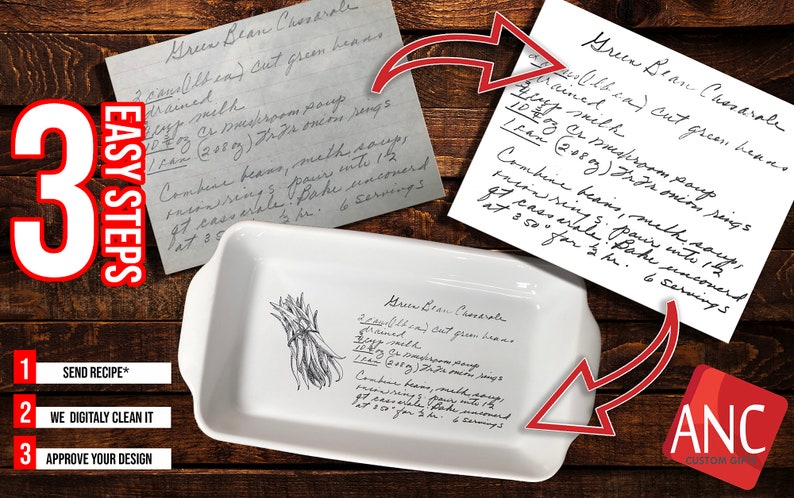 3 EASY STEPS
Green Bean Cassarole
2 cans (1lb ea) cut green beans
drained
milk
10 ¾ oz Cr Mushroom soup
1 can (2.08 oz) Fr Fr onion rings
Combine beans, melk, soup,
onion rings. pour into 1½
qt casserole. Bake uncoverd
at 350° for ½ hr. 6 servings
Green Bean Cassarole
2 cans (1lb ea) cut green beans
drained
milk
10 ¾ oz Cr Mushroom soup
1 can (2.08 oz) Fr Fr onion rings
Combine beans, melk, soup,
onion rings. pour into 1½
qt casserole. Bake uncoverd
at 350° for ½ hr. 6 servings
Green Bean Cassarole
2 cans (1lb ea) cut green beans
drained
milk
10 ¾ oz Cr Mushroom soup
1 can (2.08 oz) Fr Fr onion rings
Combine beans, melk, soup,
onion rings. pour into 1½
qt casserole. Bake uncoverd
at 350° for ½ hr. 6 servings
1 SEND RECIPE*
2 WE DIGITALY CLEAN IT
3 APPROVE YOUR DESIGN
ANC
CUSTOM GIFTS